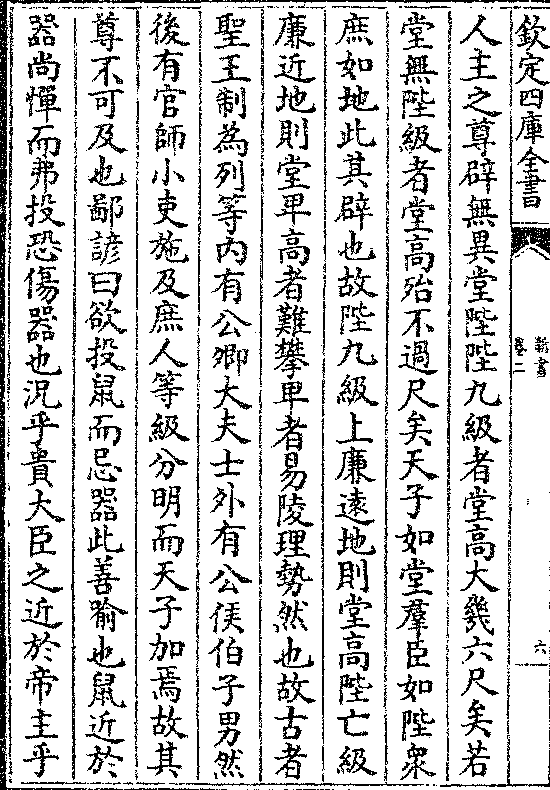 欽定四庫全書
新書
卷二
六
人主之尊辟無異堂陛陛九級者堂高大幾六尺矣若
堂無陛級者堂高殆不過尺矣天子如堂羣臣如陛衆
庶如地此其辟也故陛九級上廉逺地則堂高陛亡級
廉近地則堂卑高者難攀卑者易陵理勢然也故古者
聖王制為列等内有公卿大夫士外有公侯伯子男然
後有官師小吏施及庶人等級分明而天子加焉故其
尊不可及也鄙諺曰欲投鼠而忌器此善喻也鼠近於
器尚憚而弗投恐傷器也況乎貴大臣之近於帝主乎